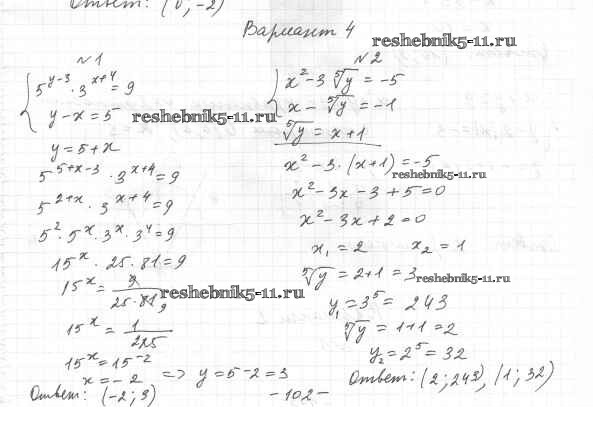 Ответ: (0; -2)
Вариант 4
reshebnik5-11.ru
№1
5^(y-3) · 3^(x+4) = 9
y - x = 5
reshebnik5-11.ru
y = 5 + x
5^(5+x-3) · 3^(x+4) = 9
5^(2+x) · 3^(x+4) = 9
5² · 5^x · 3^x · 3⁴ = 9
15^x · 25 · 81 = 9
15^x = 9/(25 · 81) 9
reshebnik5-11.ru
15^x = 1/225
15^x = 15^(-2)
x = -2 => y = 5 - 2 = 3
Ответ: (-2; 3)
№2
x² - 3 ⁵√y = -5
x - ⁵√y = -1
⁵√y = x + 1
x² - 3 · (x + 1) = -5
reshebnik5-11.ru
x² - 3x - 3 + 5 = 0
x² - 3x + 2 = 0
x₁ = 2 x₂ = 1
⁵√y = 2 + 1 = 3
reshebnik5-11.ru
y₁ = 3⁵ = 243
⁵√y = 1 + 1 = 2
y₂ = 2⁵ = 32
Ответ: (2; 243), (1; 32)
- 102 -